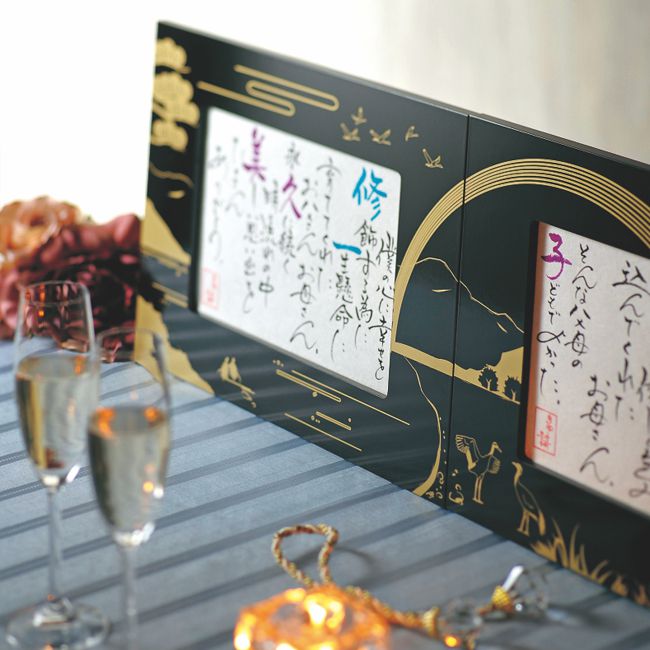 僕の心に幸せを
修飾する為に
一生懸命に
育ててくれた
お父さんお母さん。
永久に続く
時の流れの中
美しい思い出を
ありがとう。
込んでくれた
お母さん。
そんな父母の
子どもでよかった。